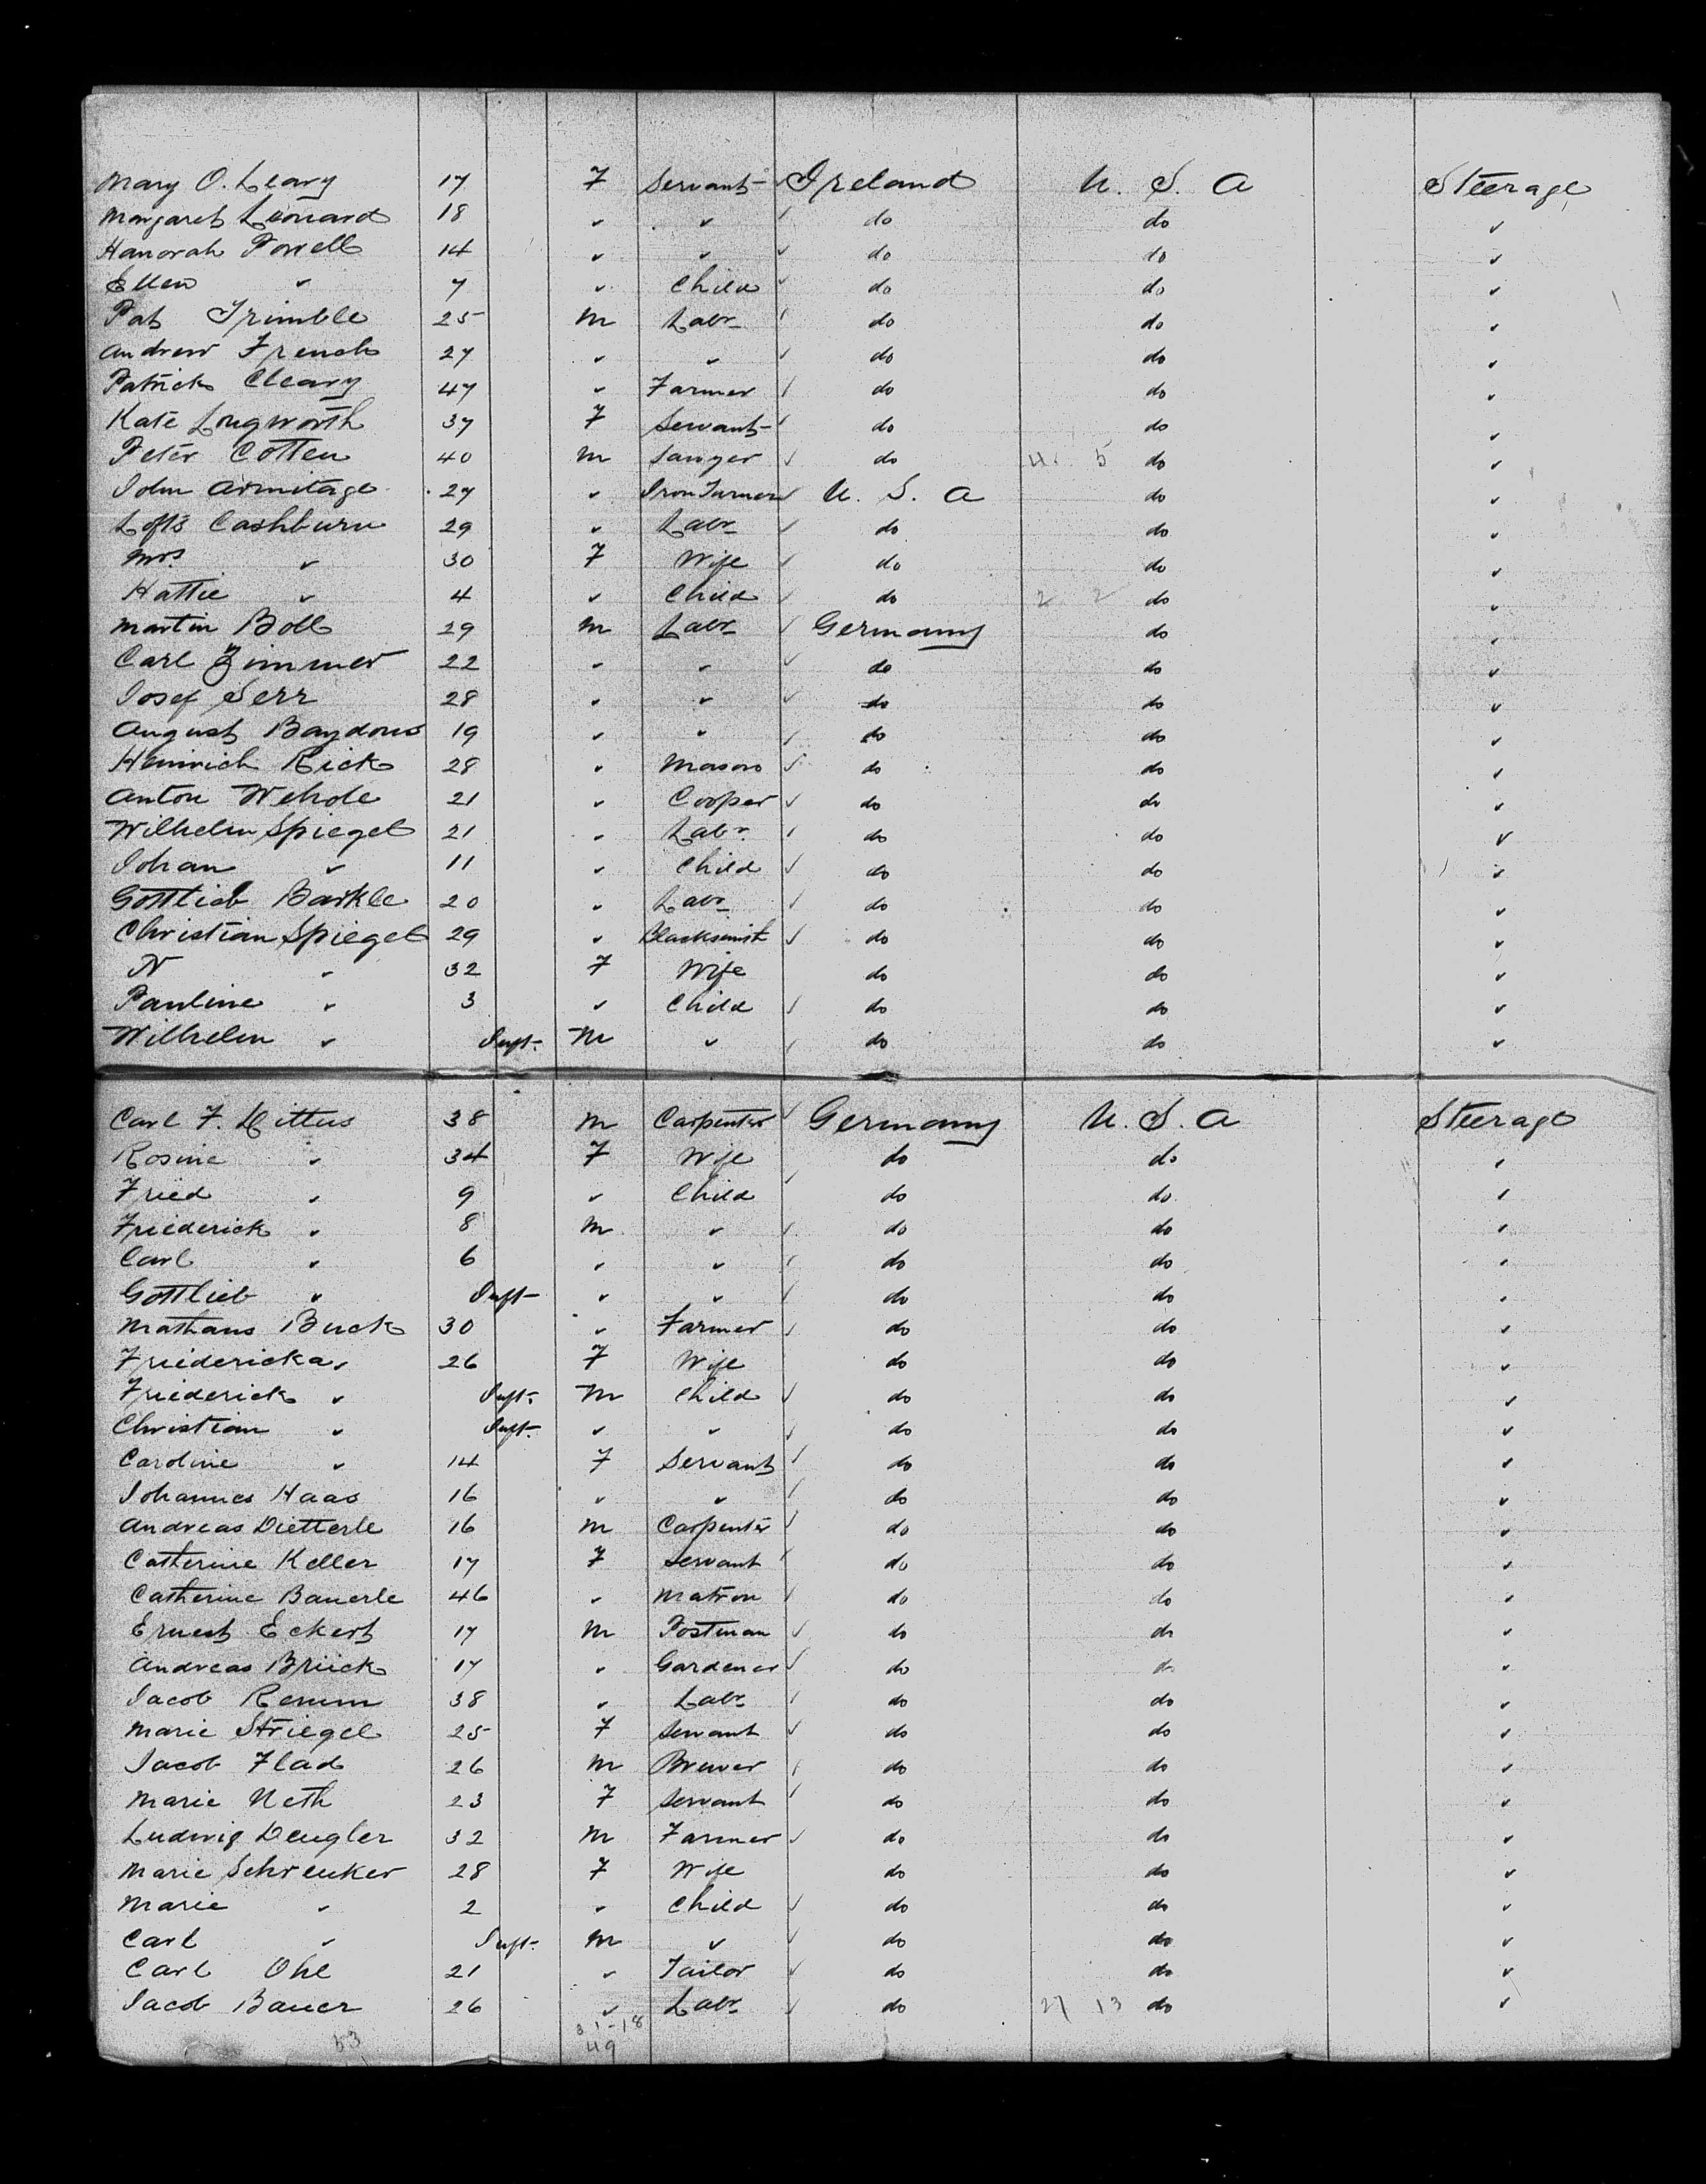 Mary O. Leary 17 F Servant Ireland U. S. A Steerage
Margaret Leonard 18 " " do do "
Hanorah Powell 14 " " do do "
Ellen " 7 " Child do do "
Pat Trimble 25 M Labr do do "
Andrew French 27 " " do do "
Patrick Cleary 47 " Farmer do do "
Kate Longworth 37 F Servant do do "
Peter Cotten 40 M Sawyer do 4 5 do "
John Armitage 27 " Iron Turner U. S. A do "
Lofts Cashburn 29 " Labr do do "
Mrs " 30 F Wife do do "
Hattie " 4 " Child do 2 2 do "
Martin Boll 29 M Labr Germany do "
Carl Zimmer 22 " " do do "
Josef Serr 28 " " do do "
August Baydous 19 " " do do "
Heinrich Rick 28 " Mason do do "
Anton Wehole 21 " Cooper do do "
Wilhelm Spiegel 21 " Labr do do "
Johan " 11 " Child do do "
Gottlieb Barkle 20 " Labr do do "
Christian Spiegel 29 " Blacksmith do do "
N " 32 F Wife do do "
Pauline " 3 " Child do do "
Wilhelm " Inft. M " do do "
Carl F. Dittus 38 M Carpenter Germany U. S. A Steerage
Rosine " 34 F Wife do do "
Fried " 9 " Child do do "
Friederick " 8 M " do do "
Carl " 6 " " do do "
Gottlieb " Inft " " do do "
Mathaus Buck 30 " Farmer do do "
Friedericka " 26 F Wife do do "
Friederick " Inft. M Child do do "
Christian " Inft. " " do do "
Caroline " 14 F Servant do do "
Johannes Haas 16 " " do do "
Andreas Dietterle 16 M Carpenter do do "
Catherine Keller 17 F Servant do do "
Catherine Bauerle 46 " Matron do do "
Ernest Eckert 17 M Postman do do "
Andreas Brück 17 " Gardener do do "
Jacob Remm 38 " Labr do do "
Marie Striegel 25 F Servant do do "
Jacob Flad 26 M Brewer do do "
Marie Neth 23 F Servant do do "
Ludwig Dengler 32 M Farmer do do "
Marie Schrenker 28 F Wife do do "
Marie " 2 " Child do do "
Carl " Inft. M " do do "
Carl Ohl 21 " Tailor do do "
Jacob Bauer 26 " Labr do 27 13 do "
53 31-18
49